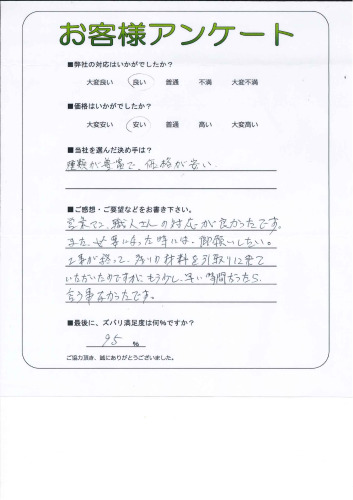 お客様アンケート
■弊社の対応はいかがでしたか?
大変良い 良い 普通 不満 大変不満
■価格はいかがでしたか?
大変安い 安い 普通 高い 大変高い
■当社を選んだ決め手は?
種類が豊富で、価格が安い
■ご感想・ご要望などをお書き下さい。
営業マン、職人さんの対応が良かったです。
また、必要になった時には、御願いしたい。
工事が終って、残りの材料を引取りに来て
いただいたのですが、もう少し、早い時間だったら、
言う事なかったです。
■最後に、ズバリ満足度は何%ですか?
95 %
ご協力頂き、誠にありがとうございました。